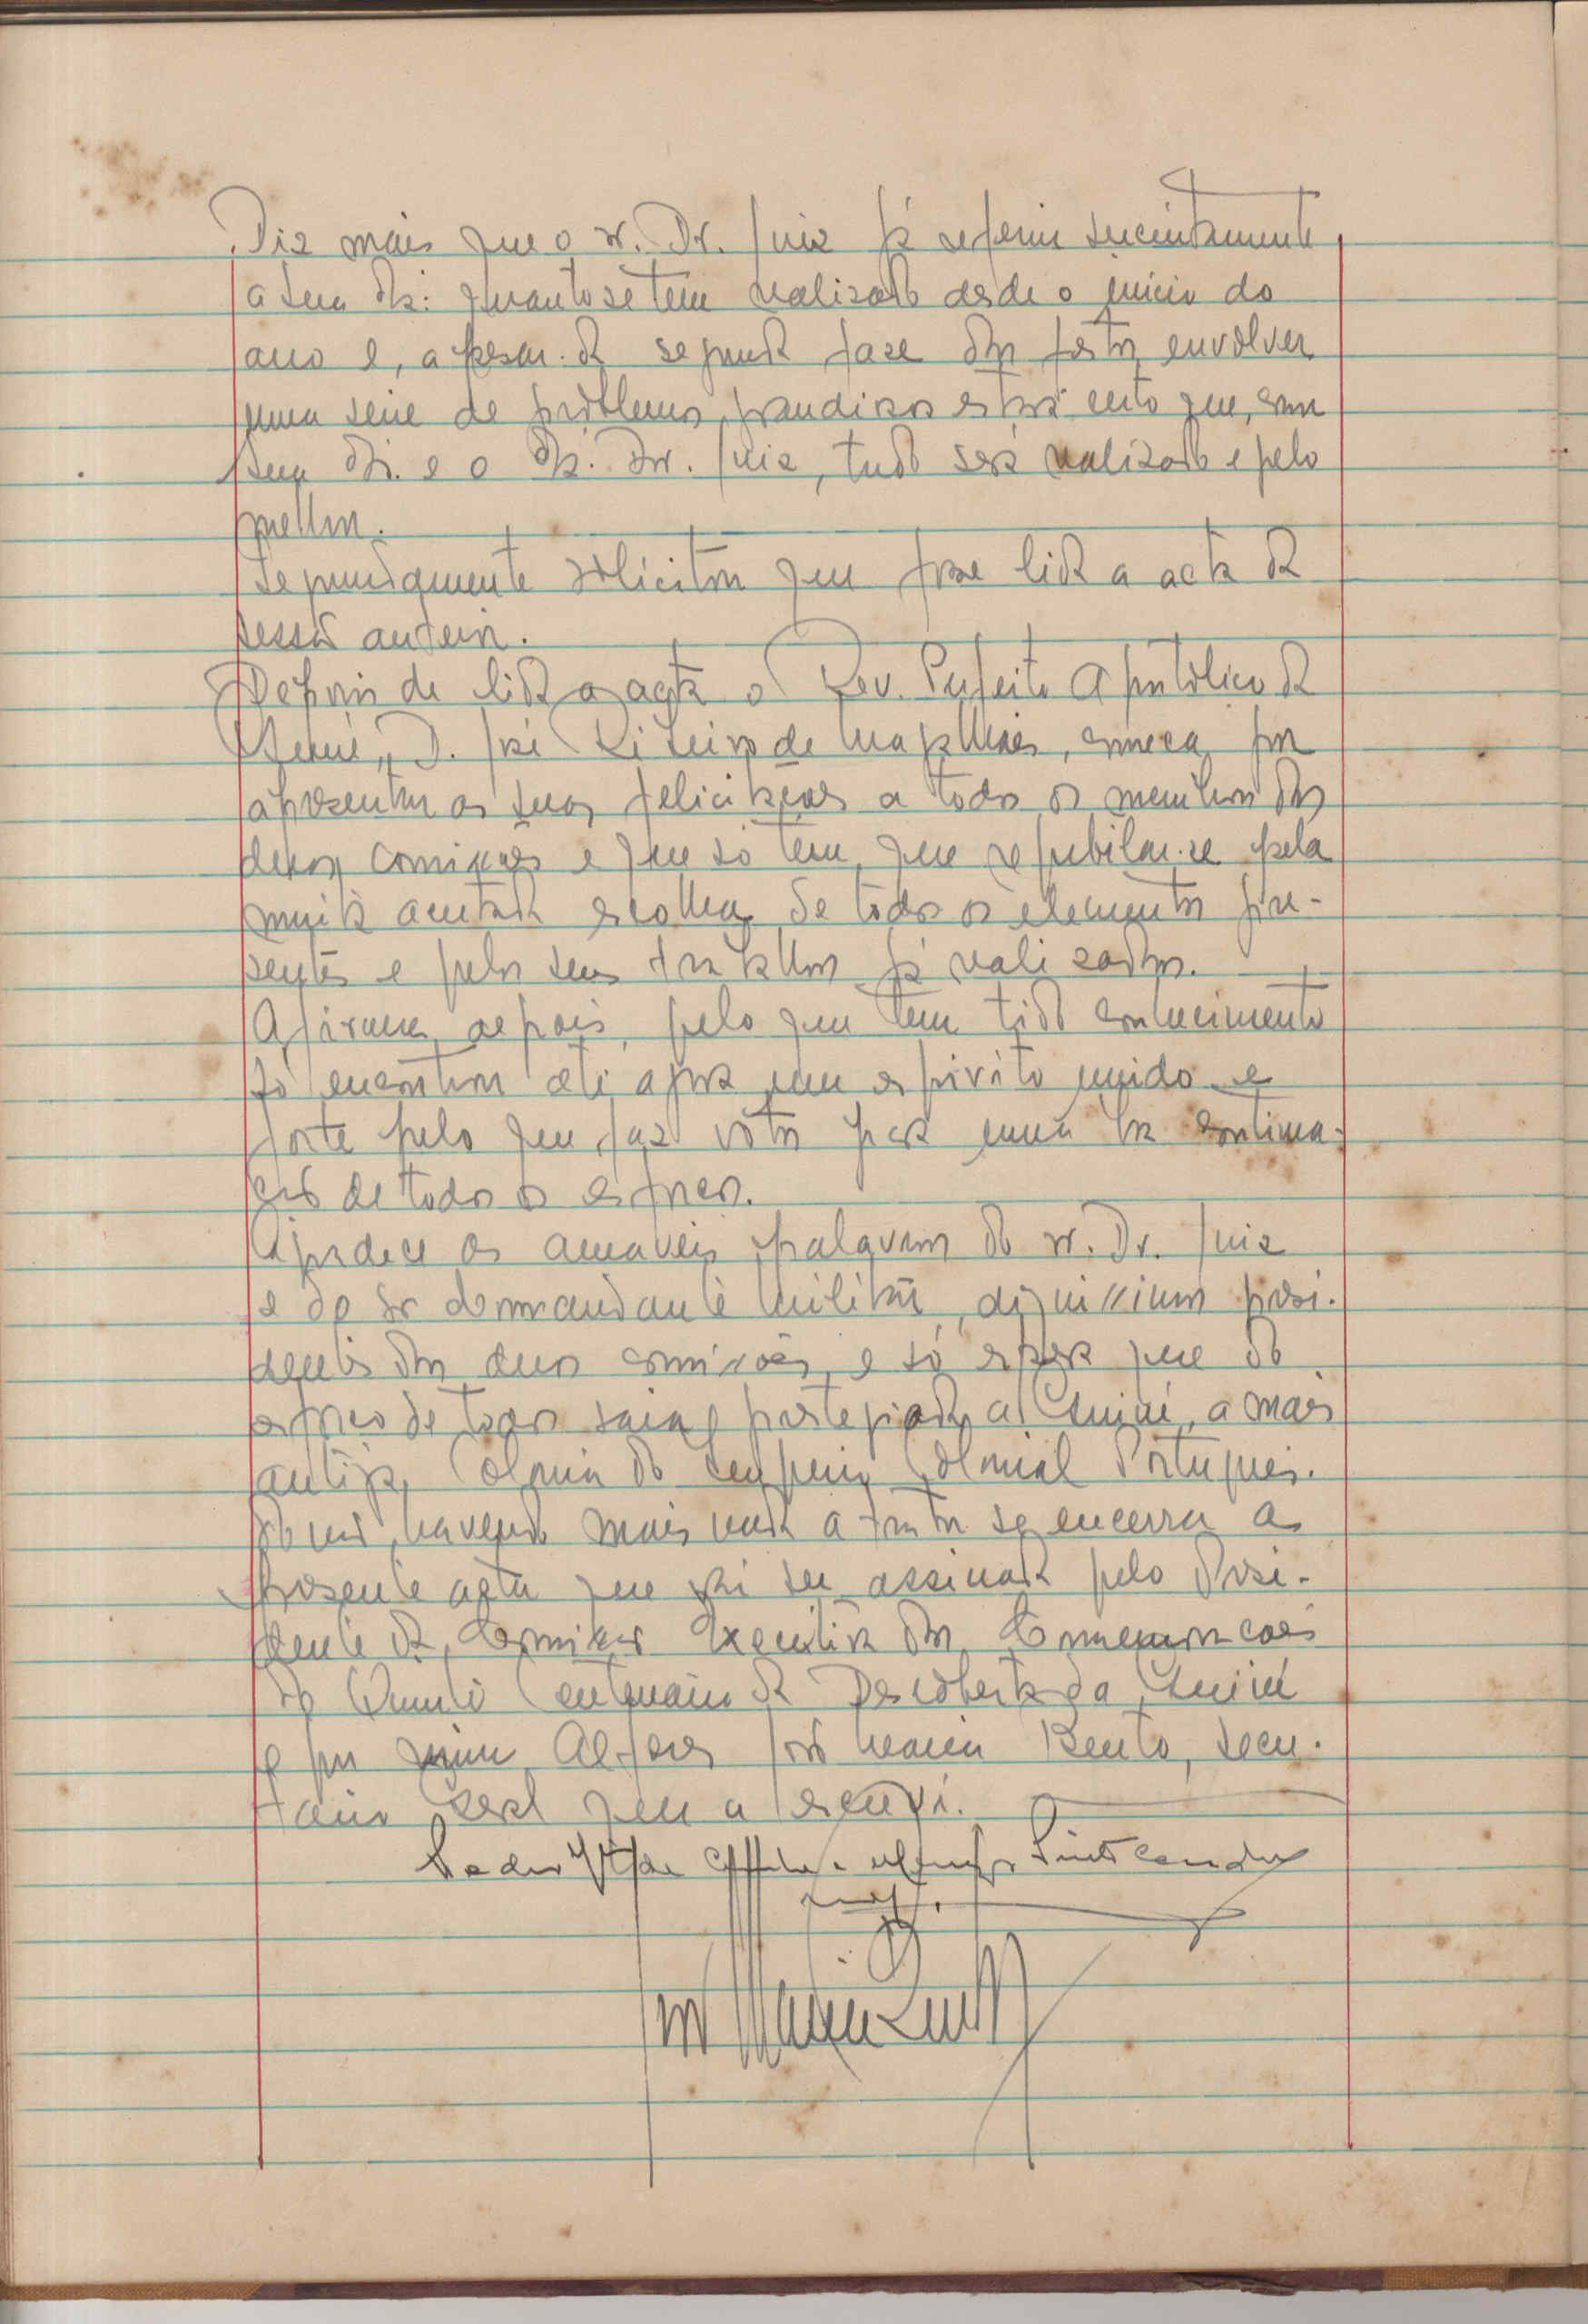 Diz mais que o sr. Dr. Juiz já referiu sucintamente
a sua quanto se tem realizado desde o início do
ano e, apesar da segunda fase das festas envolver
uma serie de problemas grandiosos está certo que, com
sua e o Dr. Juiz, tudo será realizado e pelo
melhor.
Seguidamente solicitou que fosse lida a acta da
sessão anterior.
Depois de lida a acta o Rev. Prefeito Apostólico da
Guiné, D. José Ribeiro de Magalhães, começa por
apresentar as suas felicitações a todos os membros das
duas comissões e que só tem que rejubilar-se pela
muita acertada escolha de todos os elementos pre-
sentes e pelos seus trabalhos já realizados.
Afirma depois, pelo que tem tido conhecimento
só encontrou até agora um espirito unido e
forte pelo que faz votos para uma boa continua-
ção de todos os esforços.
Agradece as amaveis palavras do sr. Dr. Juiz
e do Sr Commandante Militar, dignissimos presi-
dentes das duas comissões e só espera que do
esforço de todos saia prestegiada a Guiné, a mais
antiga Colonia do Imperio Colonial Português.
E não havendo mais nada a tratar se encerra a
presente acta que vai ser assinada pelo Presi-
dente da Comissão Executiva das Comemorações
do Quinto Centenario da Descoberta da Guiné
e por mim Alferes João Maria Bento, secre-
tario geral que a escrevi.
Pinto Cardoso
João Maria Bento